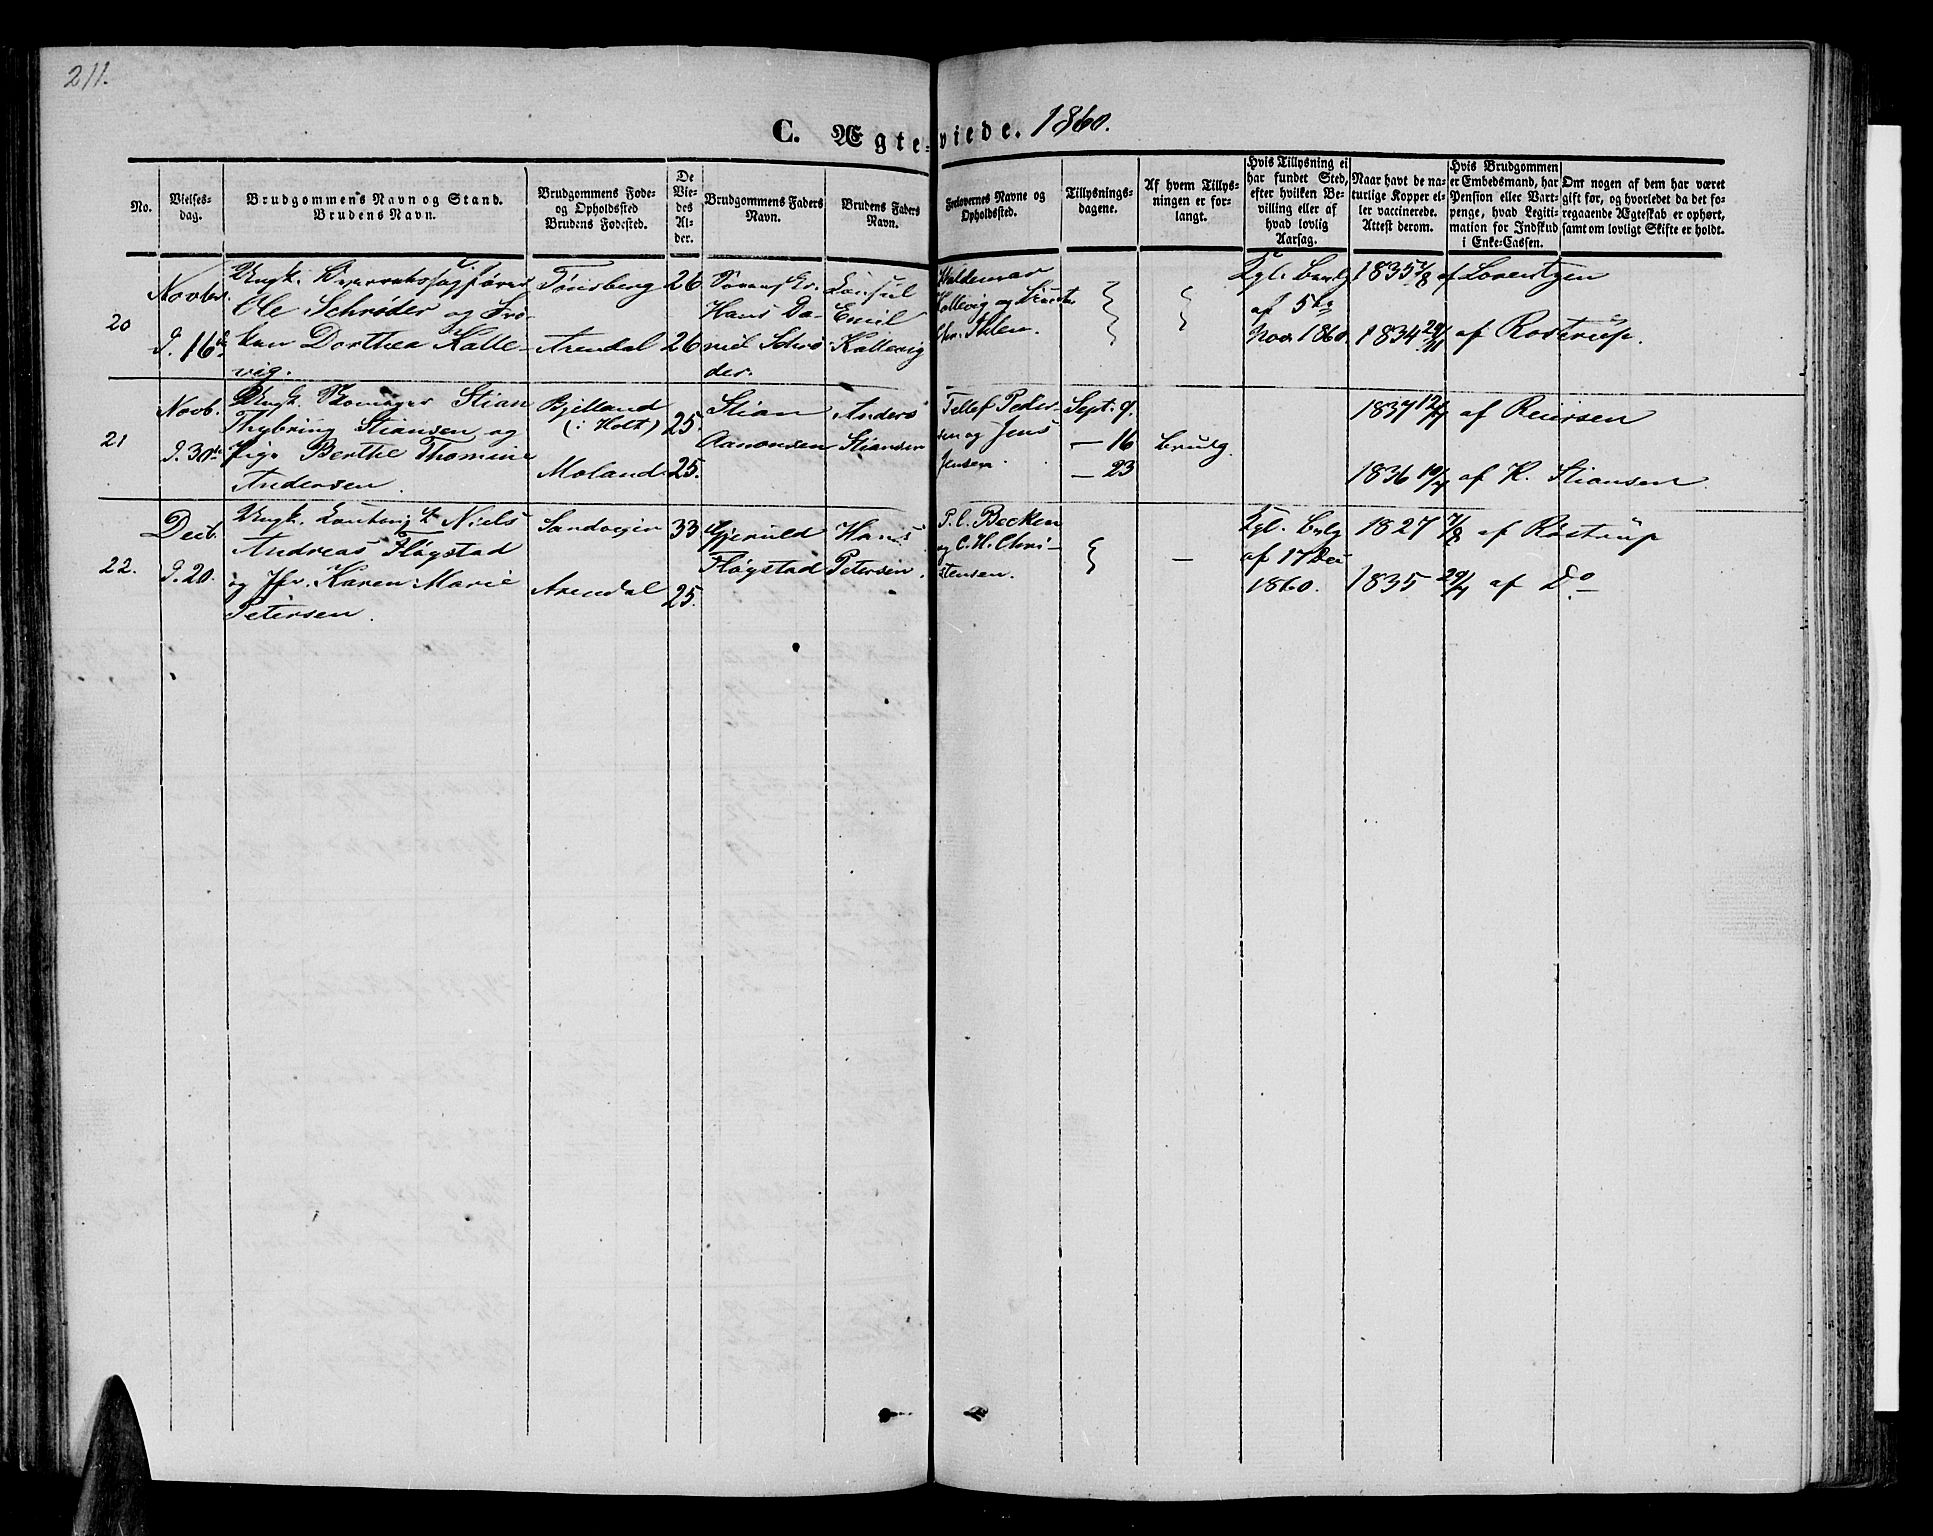 211.
C. Ægte-viede. 1860.
No.
Vielses-
dag.
Brudgommens Navn og Stand.
Brudens Navn.
Brudgommens Føde-
og Opholdssted
Brudens Fødested.
De
Vie-
des
Al-
der.
Brudgommens Faders
Navn.
Brudens Faders
Navn.
Forlovernes Navne og
Opholdssted.
Tillysnings-
dagene.
Af hvem Tillys-
ningen er for-
langt.
Hvis Tillysning ei
har fundet Sted,
efter hvilken Be-
villing eller af
hvad lovlig
Aarsag.
Naar havt de na-
turlige Kopper el-
ler vaccinerede.
Attest derom.
Hvis Brudgommen
er Embedsmand, har
Pension eller Vart-
penge, hvad Legiti-
mation for Indskud
i Enke-Cassen.
Om nogen af dem har været
gift før, og hvorledet da det fo-
regaaende Ægteskab er ophørt,
samt om lovligt Skifte er holdt.
20
Novber
d. 16de
Ungk.
Ole Schrøder og Frø-
ken Dorthea Kalle-
vig.
Tønsberg
Arendal
26
26
Hans Da-
niel Schrø-
der.
Consul
Emil
Kallevig
Waldemar
Kallevig og
Chr. Ihlen.
Kgl. Bevlg
af 5te
Nov. 1860.
1835 7/8 af Lorentzen
1834 29/11 af Rostrup.
21
Novb.
d. 30te
Ungk. Stian
Thybring Stiansen og
Pige Berthe Thomine
Andersen.
Bjelland
(i Holt)
Moland
25.
25.
Stian
Aanonsen
Anders
Stiansen
Tellef Peder-
sen og Jens
Jensen.
Sept. 9.
— 16
— 23
Brudg.
1837 12/7 af Reiersen
1836 10/7 af K. Stiansen.
22.
Decb.
d. 20.
Ungk. Niels
Andreas Fløgstad
og Jfr. Karen Marie
Petersen.
Sandvigen
Arendal
33
25.
Gjeruld
Fløgstad
Hans
Petersen.
P. C. Becken
og C. H. Chri-
stensen.
—
Kgl. Bevlg
af 17 Dec
1860.
1827 7/8 af Rostrup
1835 29/7 af Do —